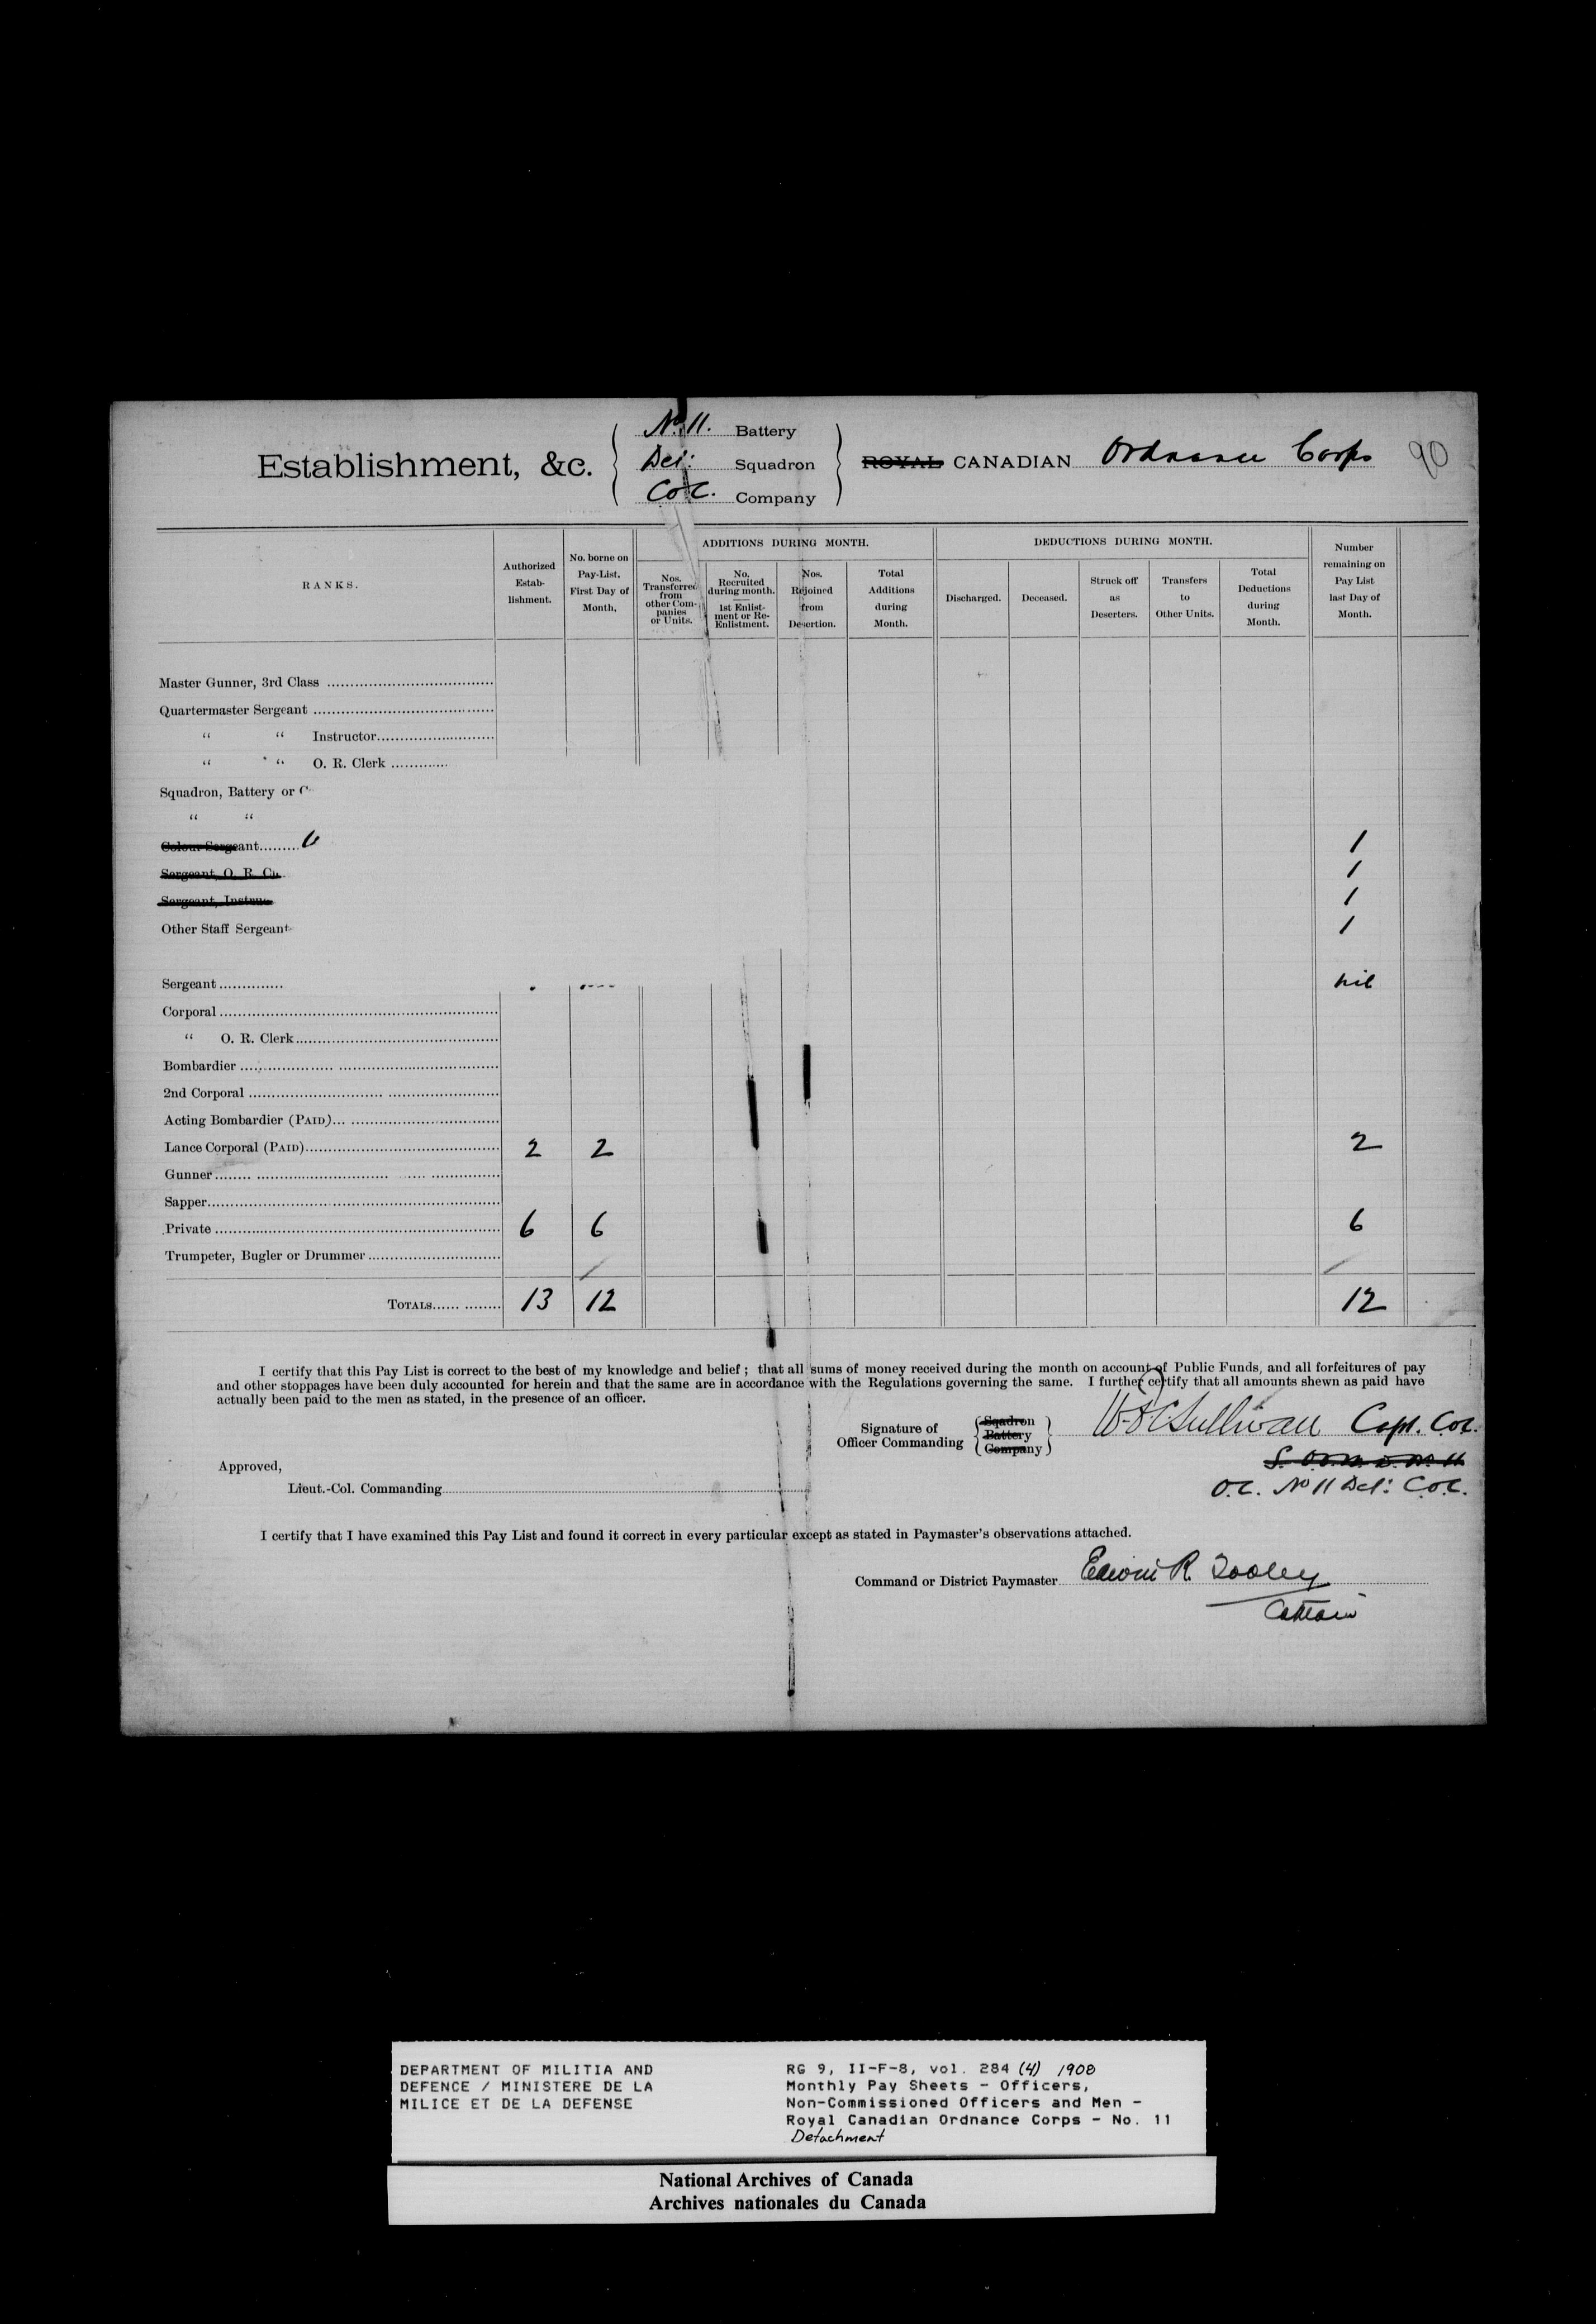 Establishment, &c.
No. 11. Battery
Det: Squadron
C.O.C. Company
ROYAL CANADIAN Ordnance Corps
90
RANKS.
Authorized Estab- lishment.
No. borne on Pay-List, First Day of Month.
ADDITIONS DURING MONTH.
Nos. Transferred from other Com- panies or Units.
No. Recruited during month. 1st Enlist- ment or Re- Enlistment.
Nos. Rejoined from Desertion.
Total Additions during Month.
DEDUCTIONS DURING MONTH.
Discharged.
Deceased.
Struck off as Deserters.
Transfers to Other Units.
Total Deductions during Month.
Number remaining on Pay List last Day of Month.
Master Gunner, 3rd Class
Quartermaster Sergeant
“ “ Instructor
“ “ O. R. Clerk
Squadron, Battery or
“ “
Colour Sergeant 1
Sergeant, O. R. 1
Sergeant, 1
Other Staff Sergeant 1
Sergeant nil
Corporal
“ O. R. Clerk
Bombardier
2nd Corporal
Acting Bombardier (PAID)
Lance Corporal (PAID) 2 2 2
Gunner
Sapper
Private 6 6 6
Trumpeter, Bugler or Drummer
TOTALS 13 12 12
I certify that this Pay List is correct to the best of my knowledge and belief; that all sums of money received during the month on account of Public Funds, and all forfeitures of pay
and other stoppages have been duly accounted for herein and that the same are in accordance with the Regulations governing the same. I further certify that all amounts shewn as paid have
actually been paid to the men as stated, in the presence of an officer.
Signature of Officer Commanding
Sqadron
Battery
Company
Sullivan Capt. C.O.C.
O.C. No 11 Det: C.O.C.
Approved,
Lieut.-Col. Commanding
I certify that I have examined this Pay List and found it correct in every particular except as stated in Paymaster's observations attached.
Command or District Paymaster Edwin R. Tooley
Captain
DEPARTMENT OF MILITIA AND
DEFENCE / MINISTERE DE LA
MILICE ET DE LA DEFENSE
RG 9, II-F-8, vol. 284 (4) 1908
Monthly Pay Sheets - Officers,
Non-Commissioned Officers and Men -
Royal Canadian Ordnance Corps - No. 11
Detachment
National Archives of Canada
Archives nationales du Canada